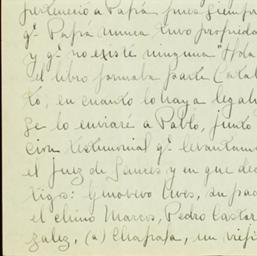 perteneció a Papá pues siempre
q^e Papá nunca tuvo propieda
y q^e no existe ninguna "Hda
el libro formaba parte Catal
to, en cuanto lo haya legali
se lo enviaré a Pablo, junto
cion testimonial q^e levantam
el juez de y en que dec
tigos: Ives, su pad
el chino Marcos, Pedro Castar
zalez, (a) Chapapa, un viej